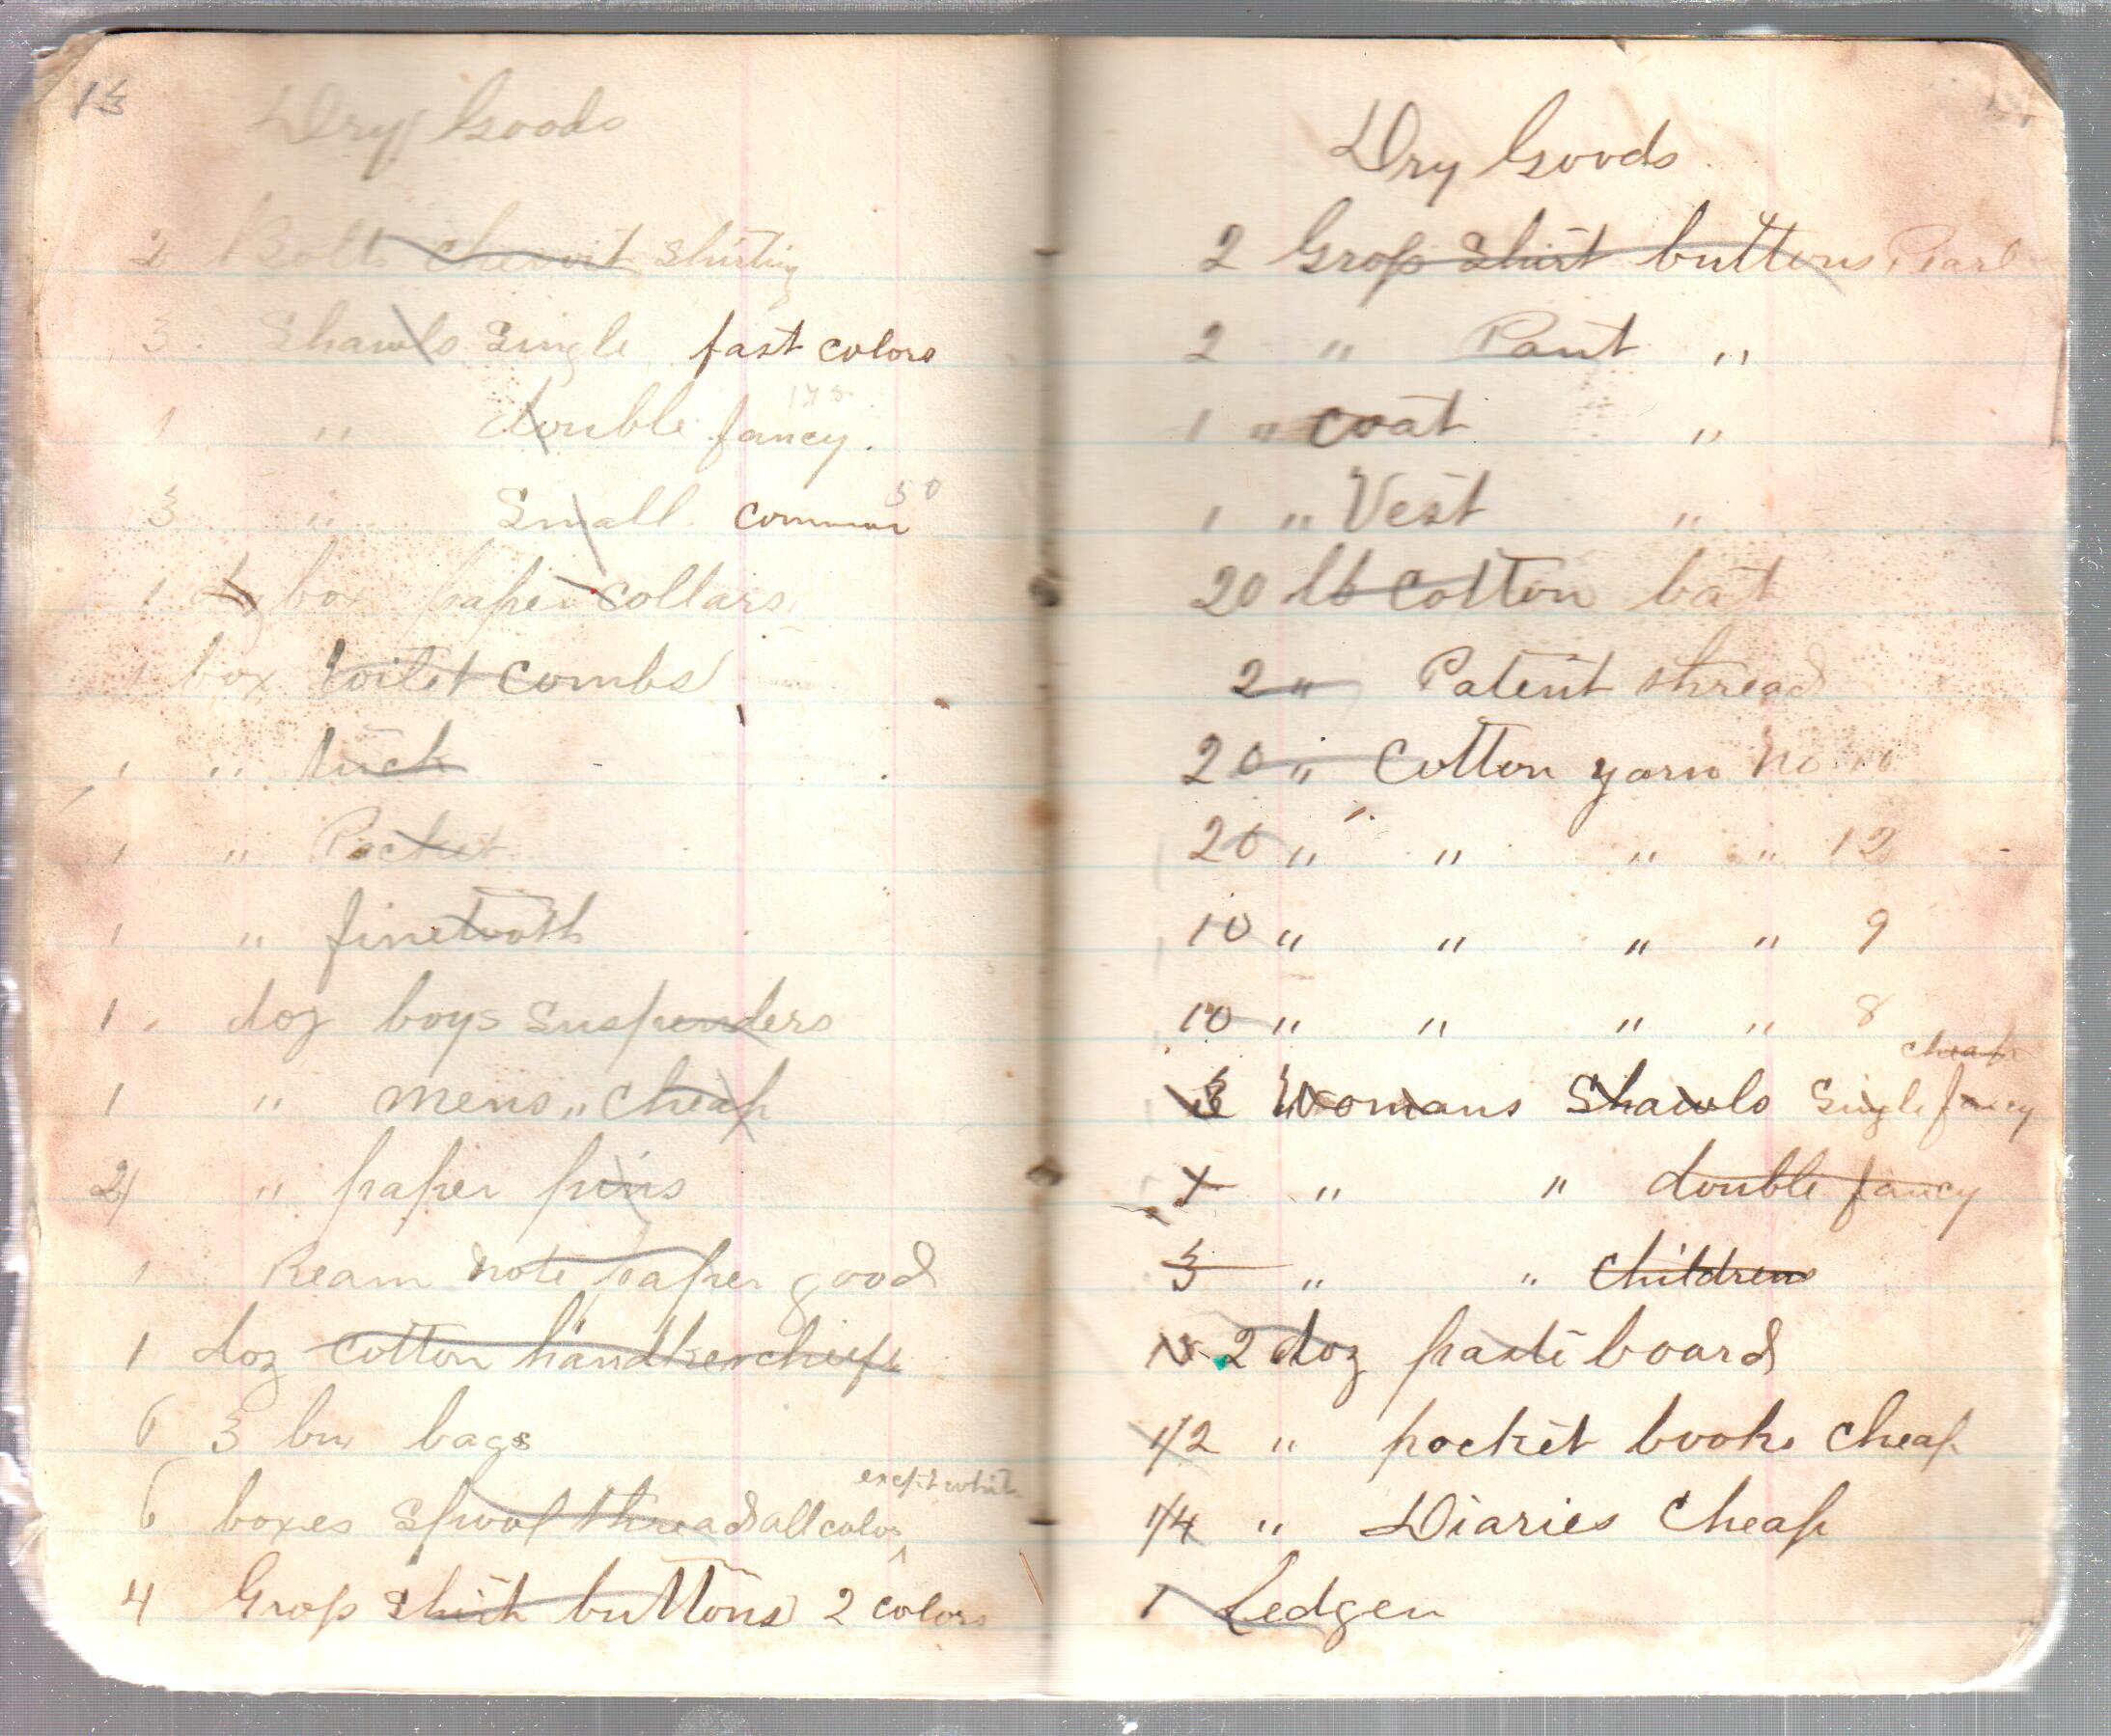 13
Dry Goods
2 Bolts cheviot shirting
3 Shawls Single fast colors
1 " double fancy. 175
3 " Small common 50
1 box paper collars
1 box toilet combs
1 " tuck
1 " Pocket
1 " finetooth
1 doz boys suspenders
1 " mens " cheap
2 " paper pins
1 Ream note paper good
1 doz cotton handkerchiefs
6 3 bu bags
6 boxes spool thread all color except whit
4 Gross shirt buttons 2 colors
Dry Goods
2 Gross Shirt buttons Pearl
2 " Pant "
1 " coat "
1 " Vest "
20 lb cotton bat
2 " Patent thread
20 " Cotton yarn No 10
20 " " " " 12
10 " " " " 9
10 " " " " 8
3 Womans Shawls Single fancy cheap
" " double fancy
3 " " childrens
2 doz paste board
1/2 " pocket books cheap
1/4 " Diaries Cheap
1 Ledger